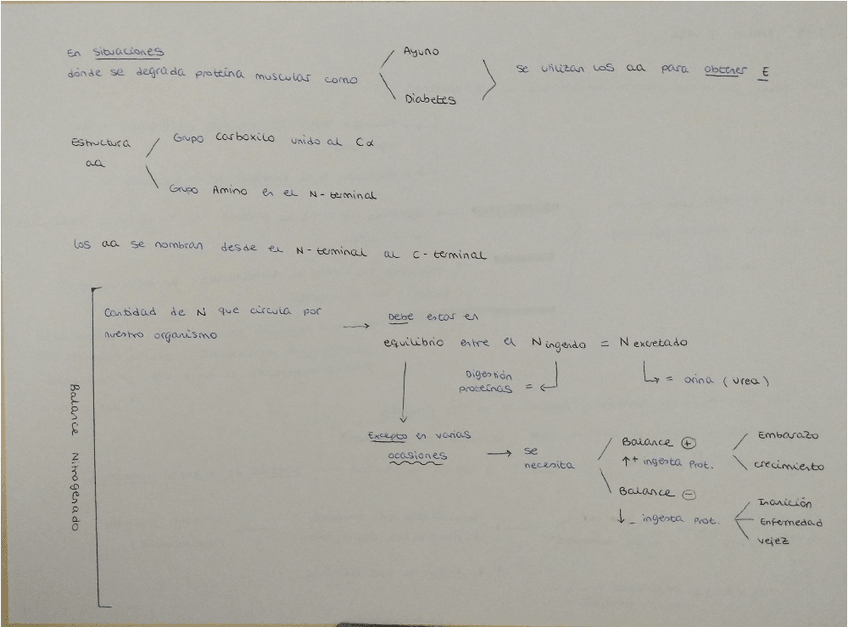 En situaciones
dónde se degrada proteína muscular como
Ayuno
Diabetes
se utilizan los aa para obtener E
Estructura
aa
Grupo Carboxilo unido al Cα
Grupo Amino en el N-terminal
Los aa se nombran desde el N-terminal al C-terminal
Balance Nitrogenado
Cantidad de N que circula por
nuestro organismo
→ Debe estar en
equilibrio entre el N ingerido = N excretado
Digestión
proteínas =
= orina (urea)
Excepto en varias
ocasiones
→ se
necesita
Balance +
↑+ ingesta Prot.
Embarazo
crecimiento
Balance -
↓- ingesta Prot.
Inanición
Enfermedad
vejez